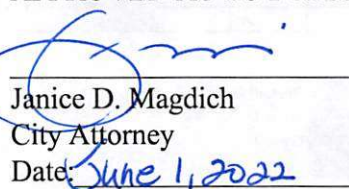 Janice D. Magdich
City Attorney
Date: June 1, 2022